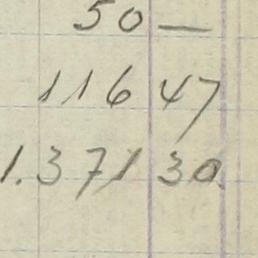 50 —
116 47
1.371 30